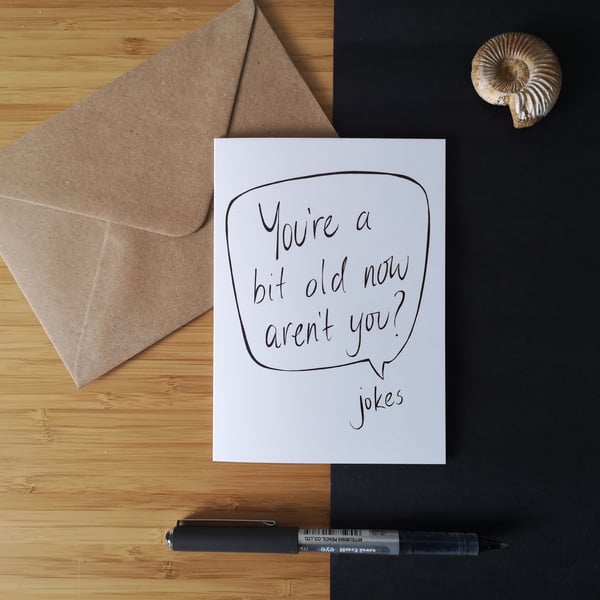 You're a
bit old now
aren't you?
jokes
MITSUBISHI PENCIL CO., LTD.
uni-ball eye